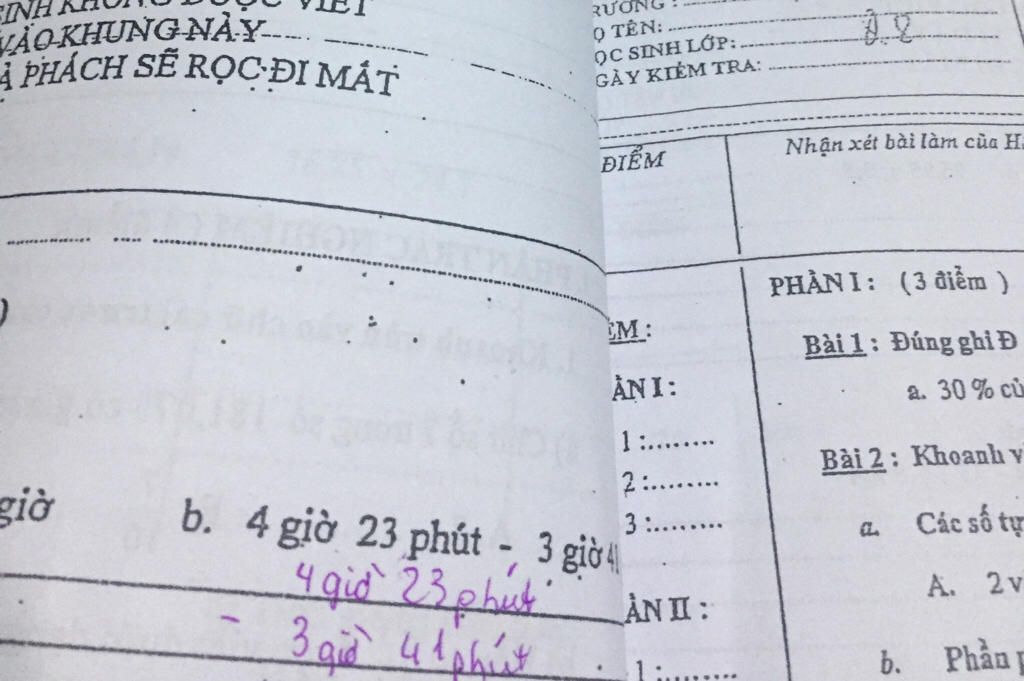 SINH KHÔNG ĐƯỢC VIẾT
VÀO KHUNG NÀY
PHÁCH SẼ RỌC ĐI MẤT
giờ b. 4 giờ 23 phút - 3 giờ 4
4 giờ 23 phút
- 3 giờ 41 phút
TRƯỜNG :
TÊN:
HỌC SINH LỚP:
NGÀY KIỂM TRA:
ĐIỂM
Nhận xét bài làm của
ĐIỂM :
PHẦN I :
1 :.........
2 :.........
3 :.........
PHẦN II :
1 :
PHẦN I : ( 3 điểm )
Bài 1 : Đúng ghi Đ
a. 30 % củ
Bài 2 : Khoanh v
a. Các số tự
A. 2 v
b. Phần p